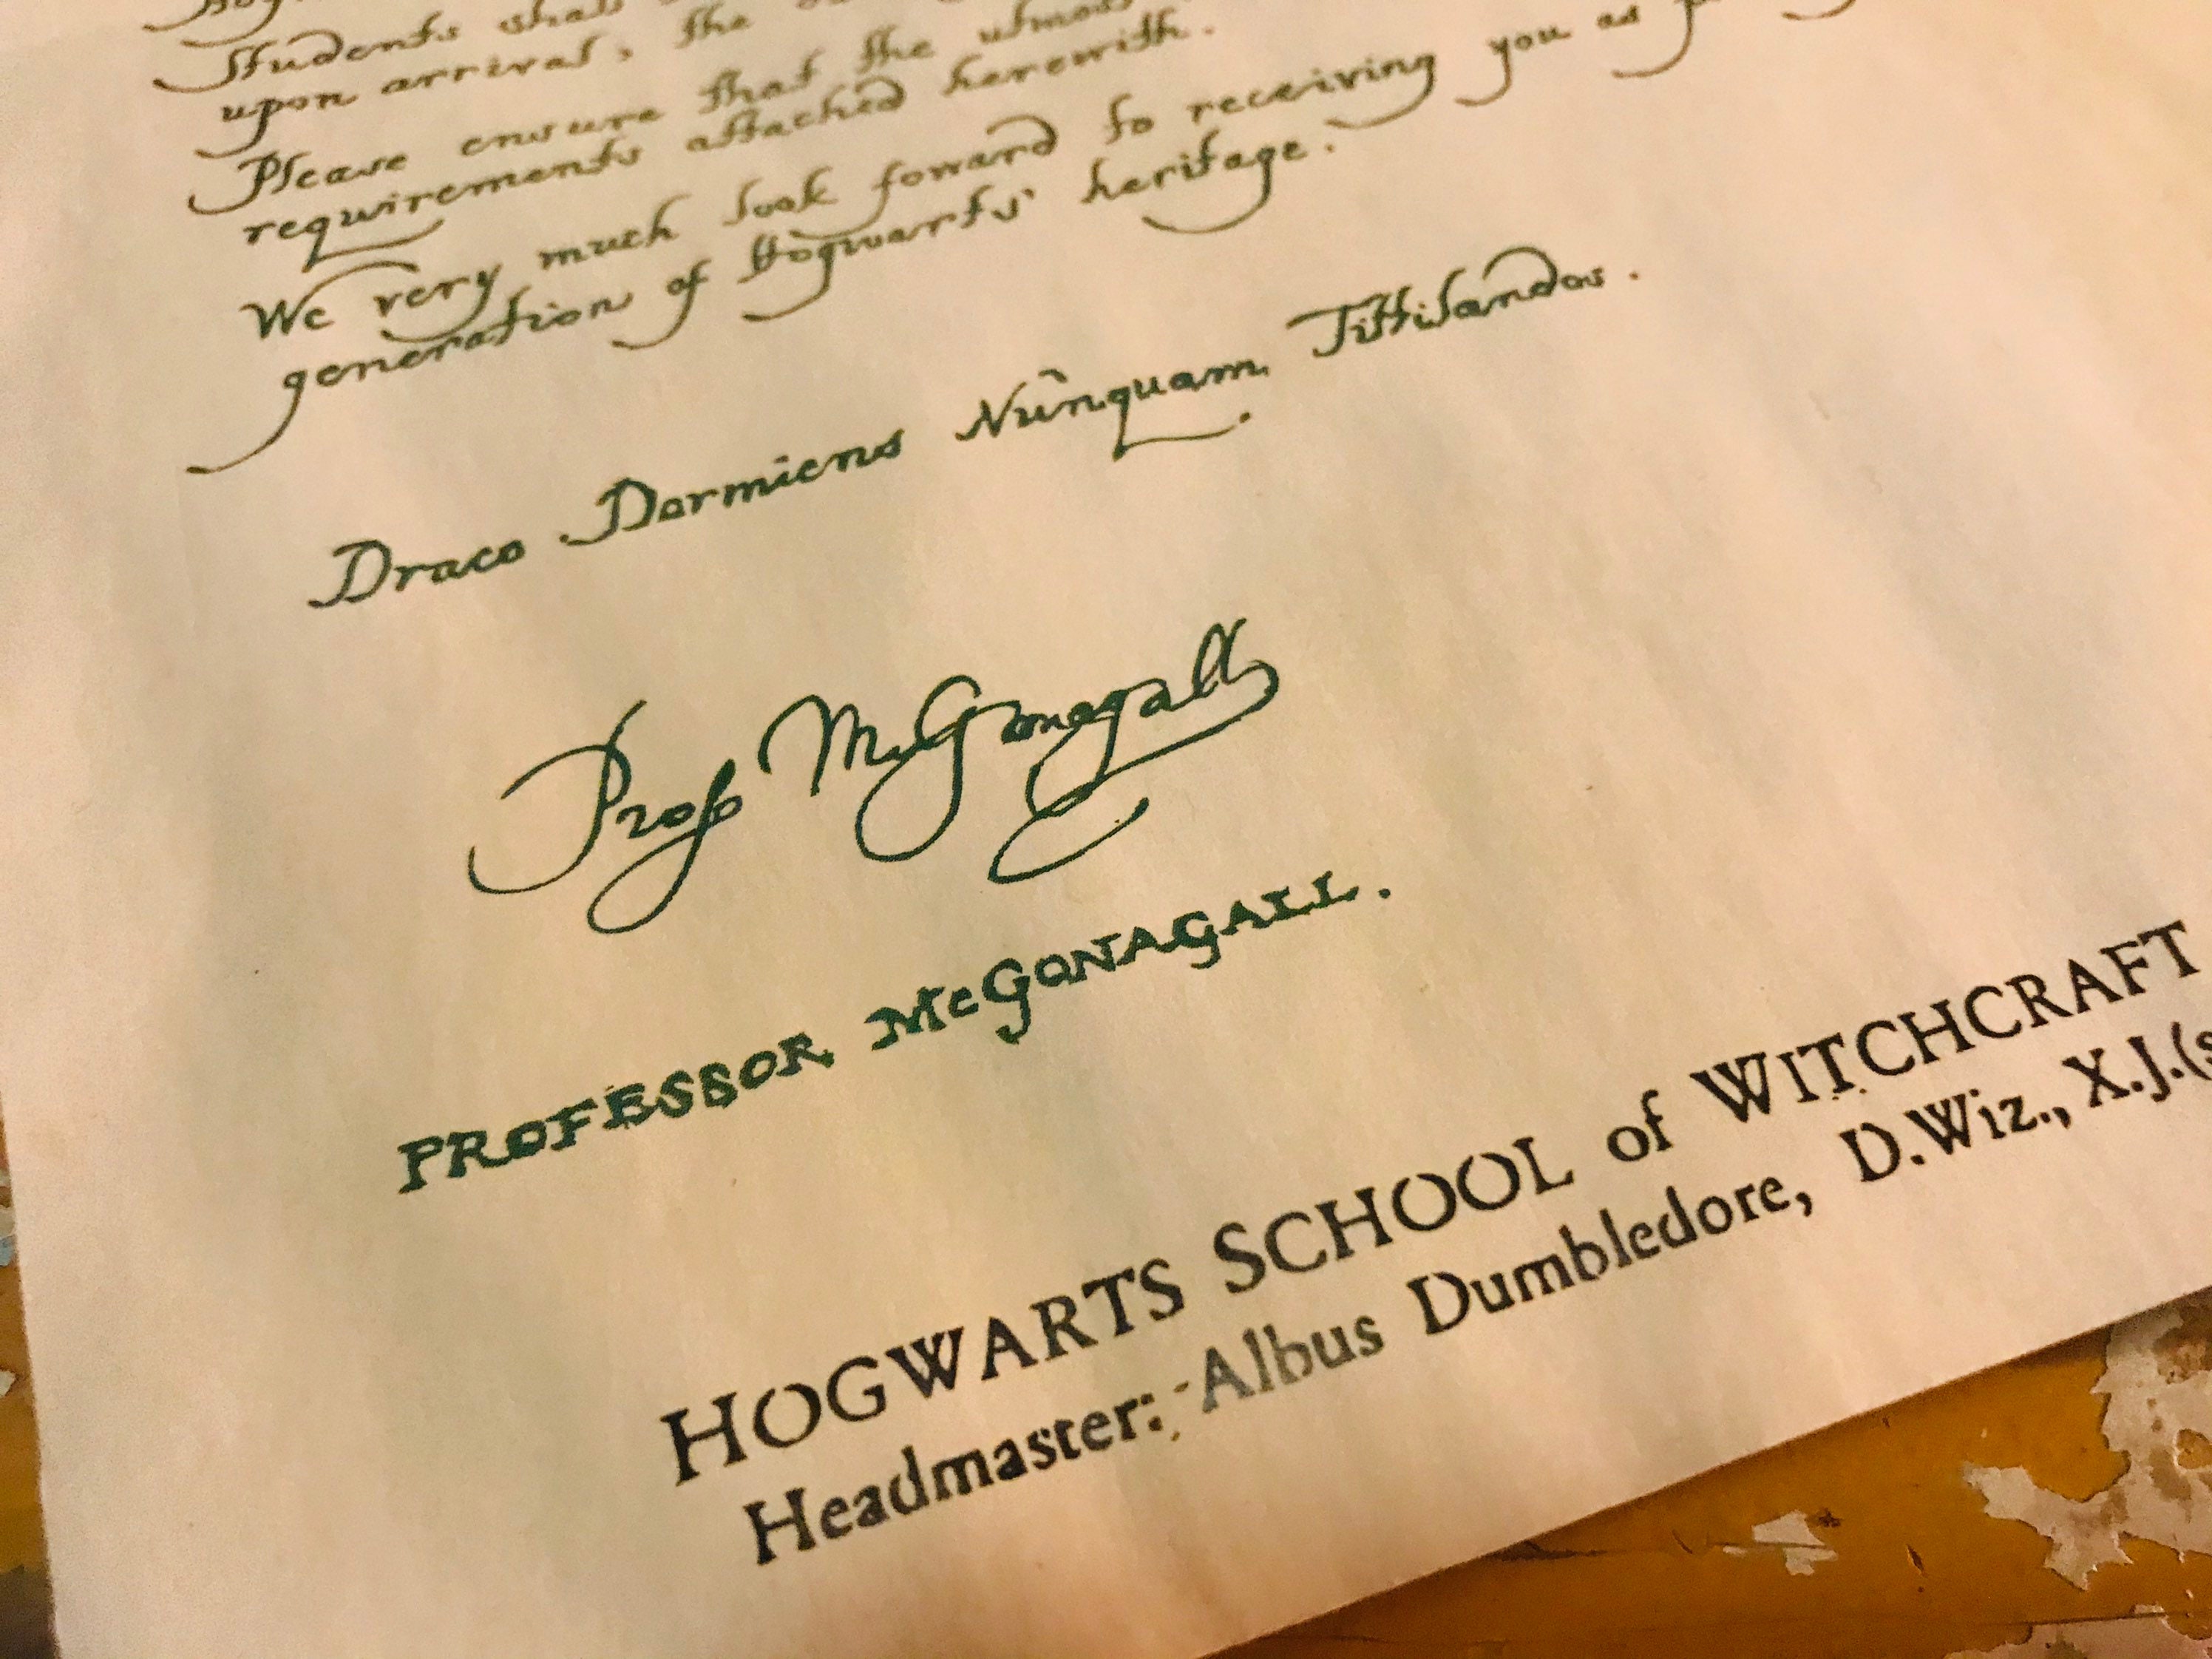 Students shall
upon arrival, the
Please ensure that the utmost
requirements attached herewith.
We very much look foward to receiving you as
generation of Hogwarts' heritage.
Draco Dormiens Nunquam Tittilandus.
Prof McGonagall
PROFESSOR McGONAGALL.
HOGWARTS SCHOOL of WITCHCRAFT
Headmaster: Albus Dumbledore, D.Wiz., X.J.(s